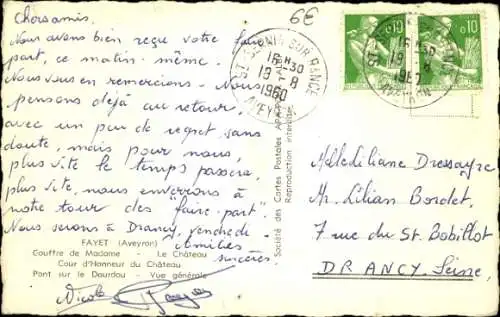 Chers amis.
Nous avons bien reçu votre faire
part, ce matin-même.
Nous vous en remercions. Nous
pensons déjà au retour,
avec un peu de regret sans
doute, mais pour nous,
plus vite le temps passera,
plus vite, nous enverrons à
notre tour des "faire-part".
Nous serons à Drancy, vendredi.
Amitiés
sincères
Nicole
FAYET (Aveyron)
Gouffre de Madame - Le Château
Cour d'Honneur du Château
Pont sur le Dourdou - Vue générale
Société des Cartes Postales
Reproduction interdite
6E
SUR RANCE
16 H 30
19 - 8
1960
AVEYRON
0,10
0,10
16 H 30
19 - 8
Melle Liliane Dressayre
Mr. Lilian Bordet,
7 rue du St. Bobillot
DRANCY. Seine.